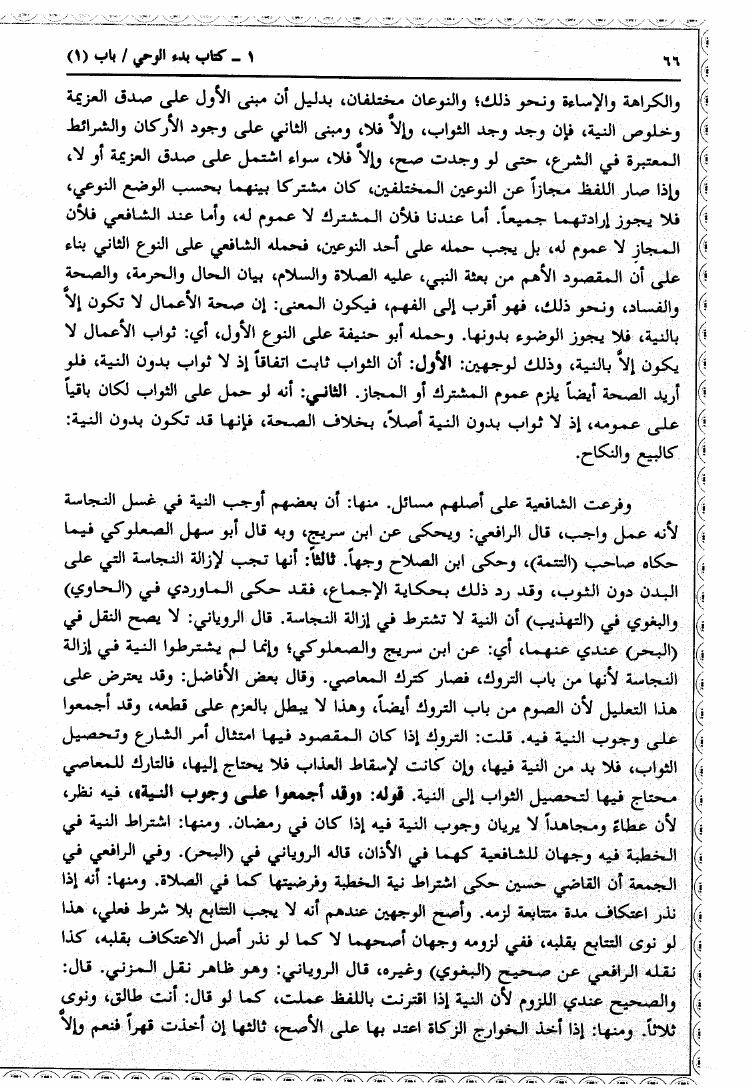 ٦٦
١ ـ كتاب بدء الوحي / باب (١)
والكراهة والإساءة ونحو ذلك؛ والنوعان مختلفان، بدليل أن مبنى الأول على صدق العزيمة
وخلوص النية، فإن وجد وجد الثواب، وإلاَّ فلا، ومبنى الثاني على وجود الأركان والشرائط
المعتبرة في الشرع، حتى لو وجدت صح، وإلاَّ فلا، سواء اشتمل على صدق العزيمة أو لا،
وإذا صار اللفظ مجازاً عن النوعين المختلفين، كان مشتركا بينهما بحسب الوضع النوعي،
فلا يجوز إرادتهما جميعاً. أما عندنا فلأن المشترك لا عموم له، وأما عند الشافعي فلأن
المجاز لا عموم له، بل يجب حمله على أحد النوعين، فحمله الشافعي على النوع الثاني بناء
على أن المقصود الأهم من بعثة النبي، عليه الصلاة والسلام، بيان الحال والحرمة، والصحة
والفساد، ونحو ذلك، فهو أقرب إلى الفهم، فيكون المعنى: إن صحة الأعمال لا تكون إلاَّ
بالنية، فلا يجوز الوضوء بدونها. وحمله أبو حنيفة على النوع الأول، أي: ثواب الأعمال لا
يكون إلاَّ بالنية، وذلك لوجهين: الأول: أن الثواب ثابت اتفاقاً إذ لا ثواب بدون النية، فلو
أريد الصحة أيضاً يلزم عموم المشترك أو المجاز. الثاني: أنه لو حمل على الثواب لكان باقياً
على عمومه، إذ لا ثواب بدون النية أصلاً، بخلاف الصحة، فإنها قد تكون بدون النية:
كالبيع والنكاح.
وفرعت الشافعية على أصلهم مسائل. منها: أن بعضهم أوجب النية في غسل النجاسة
لأنه عمل واجب، قال الرافعي: ويحكى عن ابن سريج، وبه قال أبو سهل الصعلوكي فيما
حكاه صاحب (التتمة)، وحكى ابن الصلاح وجهاً. ثالثاً: أنها تجب لإزالة النجاسة التي على
البدن دون الثوب، وقد رد ذلك بحكاية الإجماع، فقد حكى الماوردي في (الحاوي)
والبغوي في (التهذيب) أن النية لا تشترط في إزالة النجاسة. قال الروياني: لا يصح النقل في
(البحر) عندي عنهما، أي: عن ابن سريج والصعلوكي؛ وإنما لم يشترطوا النية في إزالة
النجاسة لأنها من باب التروك، فصار كترك المعاصي. وقال بعض الأفاضل: وقد يعترض على
هذا التعليل لأن الصوم من باب التروك أيضاً، وهذا لا يبطل بالعزم على قطعه، وقد أجمعوا
على وجوب النية فيه. قلت: التروك إذا كان المقصود فيها امتثال أمر الشارع وتحصيل
الثواب، فلا بد من النية فيها، وإن كانت لإسقاط العذاب فلا يحتاج إليها، فالتارك للمعاصي
محتاج فيها لتحصيل الثواب إلى النية. قوله: «وقد أجمعوا على وجوب النية»، فيه نظر،
لأن عطاءً ومجاهداً لا يريان وجوب النية فيه إذا كان في رمضان. ومنها: اشتراط النية في
الخطبة فيه وجهان للشافعية كهما في الأذان، قاله الروياني في (البحر). وفي الرافعي في
الجمعة أن القاضي حسين حكى اشتراط نية الخطبة وفرضيتها كما في الصلاة. ومنها: أنه إذا
نذر اعتكاف مدة متتابعة لزمه. وأصح الوجهين عندهم أنه لا يجب التتابع بلا شرط فعلي، هذا
لو نوى التتابع بقلبه، ففي لزومه وجهان أصحهما لا كما لو نذر أصل الاعتكاف بقلبه، كذا
نقله الرافعي عن صحيح (البغوي) وغيره، قال الروياني: وهو ظاهر نقل المزني. قال:
والصحيح عندي اللزوم لأن النية إذا اقترنت باللفظ عملت، كما لو قال: أنت طالق، ونوى
ثلاثاً. ومنها: إذا أخذ الخوارج الزكاة اعتد بها على الأصح، ثالثها إن أخذت قهراً فنعم وإلاَّ